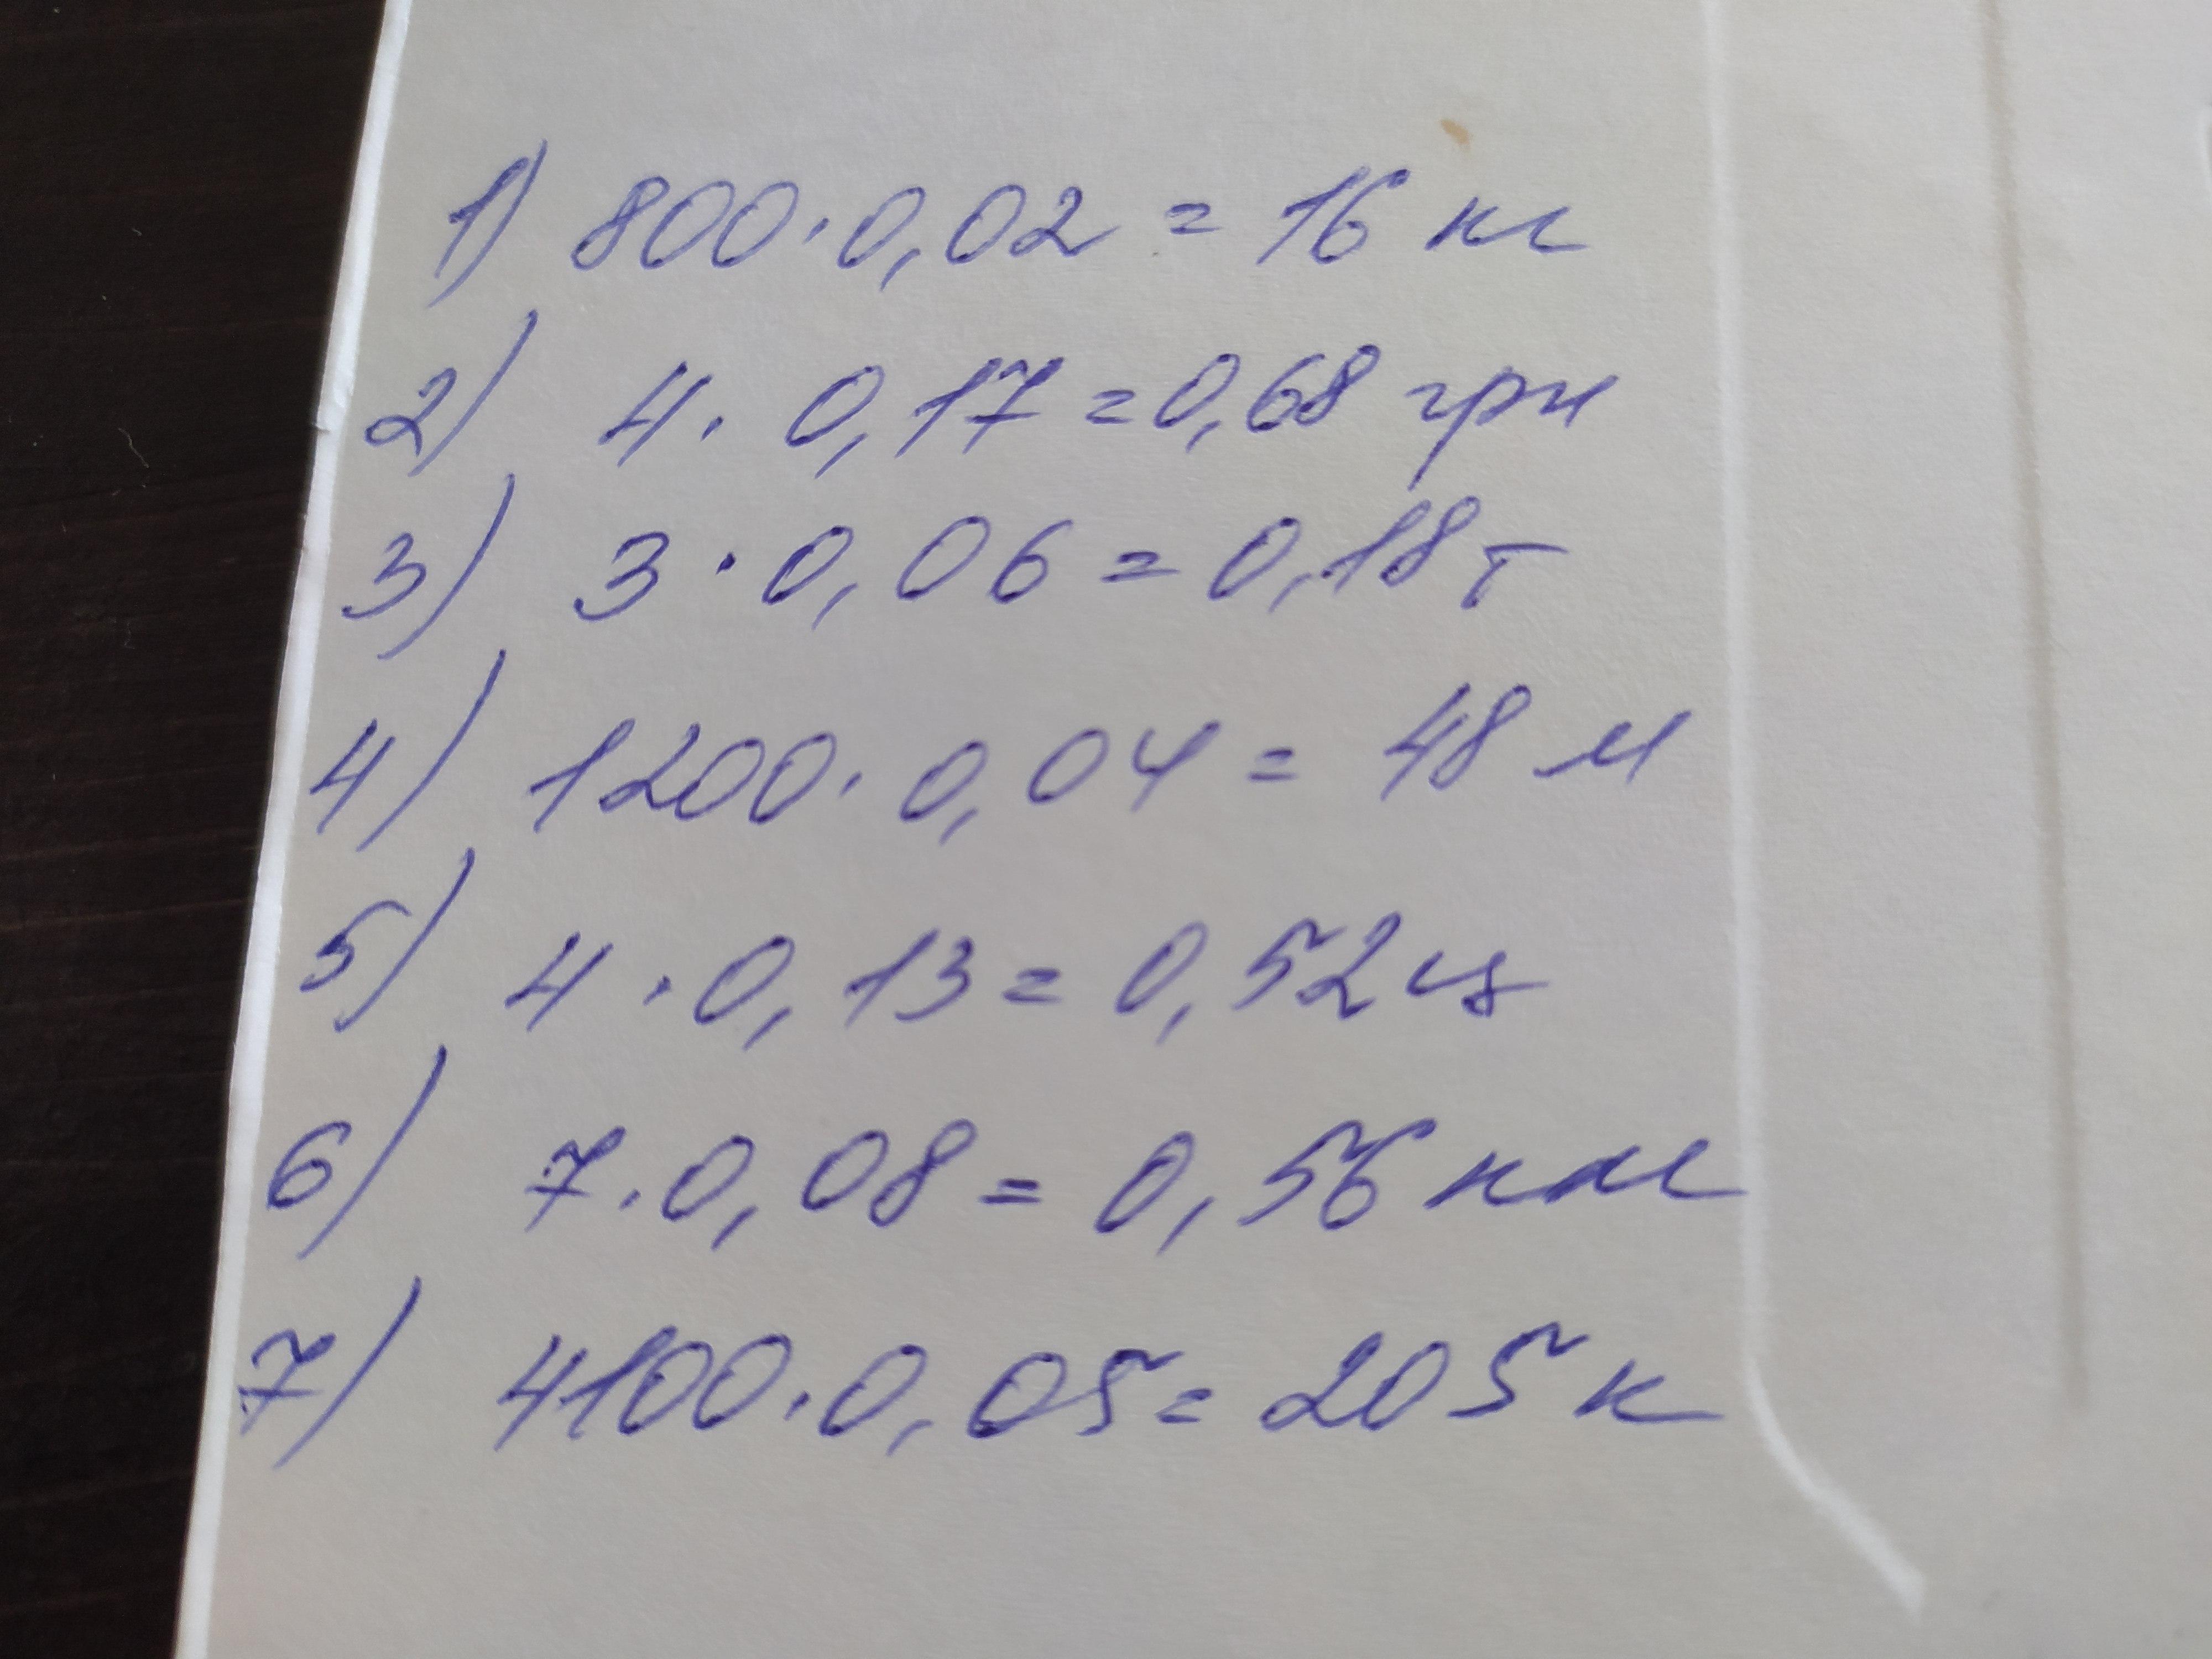 1) 800·0,02 = 16 кг
2) 4·0,17=0,68 грн
3) 3·0,06=0,18 т
4) 1200·0,04 = 48 м
5) 4·0,13=0,52 ц
6) 7·0,08=0,56 км
7) 4100·0,05=205 к